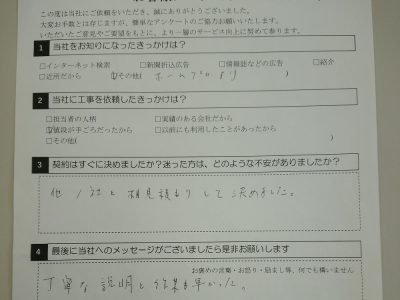 この度は当社にご依頼をいただき、誠にありがとうございました。
大変お手数とは存じますが、簡単なアンケートのご協力お願いいたします。
いただいたご意見やご要望をもとに、より一層のサービス向上に努めて参ります。
1 当社をお知りになったきっかけは？
□インターネット検索 □新聞折込広告 □情報誌などの広告 □紹介
□近所だから ☑その他( ホームプロより )
2 当社に工事を依頼したきっかけは？
□担当者の人柄 □実績のある会社だから
☑値段が手ごろだったから □以前にも利用したことがあったから
□その他( )
3 契約はすぐに決めましたか？迷った方は、どのような不安がありましたか？
他1社と相見積もりして決めました。
4 最後に当社へのメッセージがございましたら是非お願いします
お褒めの言葉・お怒り・励まし等、何でも構いません
丁寧な説明と作業も早かった。